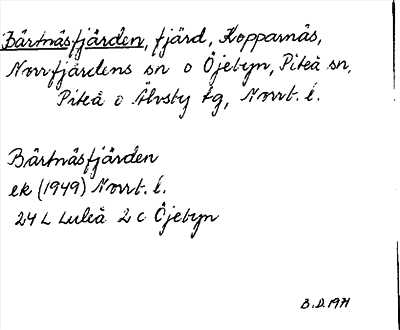 Bårtnäsfjärden, fjärd, Kopparnäs,
Norrfjärdens sn o Öjebyn, Piteå sn,
Piteå o Älvsby tg, Norrt. l.
Bårtnäsfjärden
ek (1949) Norrt. l.
24 L Luleå 2 c Öjebyn
B.D. 1971